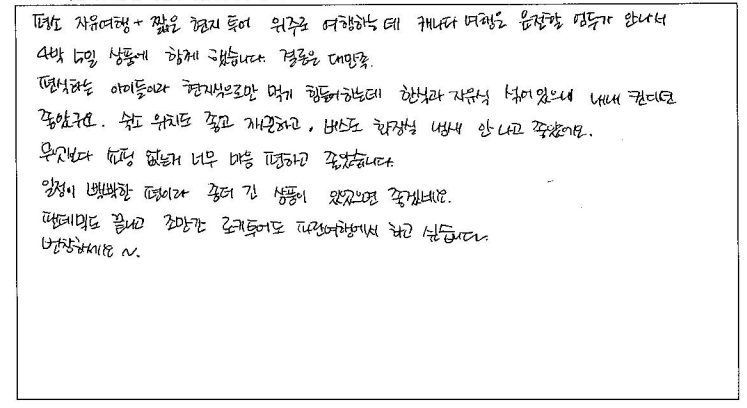 평소 자유여행 + 짧은 현지 투어 위주로 여행하는데 캐나다 여행은 운전할 엄두가 안나서
4박 5일 상품에 함께 했습니다. 결론은 대만족.
편식하는 아이들이라 현지식으로만 먹게 힘들어하는데 한식과 자유식 섞어있으니 내내 컨디션
좋았구요. 숙소 위치도 좋고 깨끗하고, 버스도 화장실 냄새 안나고 좋았어요.
무엇보다 쇼핑 없는거 너무 마음 편하고 좋았습니다.
일정이 빡빡한 편이라 좀더 긴 상품이 있었으면 좋겠네요.
팬데믹도 끝나고 조만간 로키투어도 파란여행에서 하고 싶습니다.
번창하세요 ~.